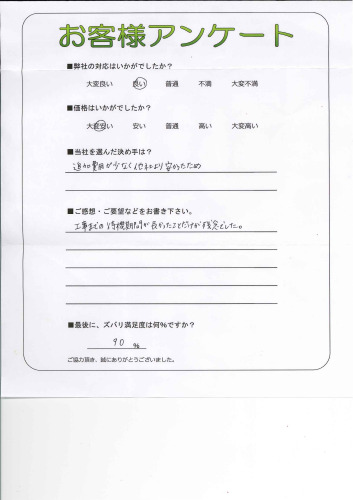 お客様アンケート
■弊社の対応はいかがでしたか？
大変良い 良い 普通 不満 大変不満
■価格はいかがでしたか？
大変安い 安い 普通 高い 大変高い
■当社を選んだ決め手は？
追加費用が少なく他社より安かったため
■ご感想・ご要望などをお書き下さい。
工事までの待機期間が長かったことだけが残念でした。
■最後に、ズバリ満足度は何%ですか？
90 %
ご協力頂き、誠にありがとうございました。